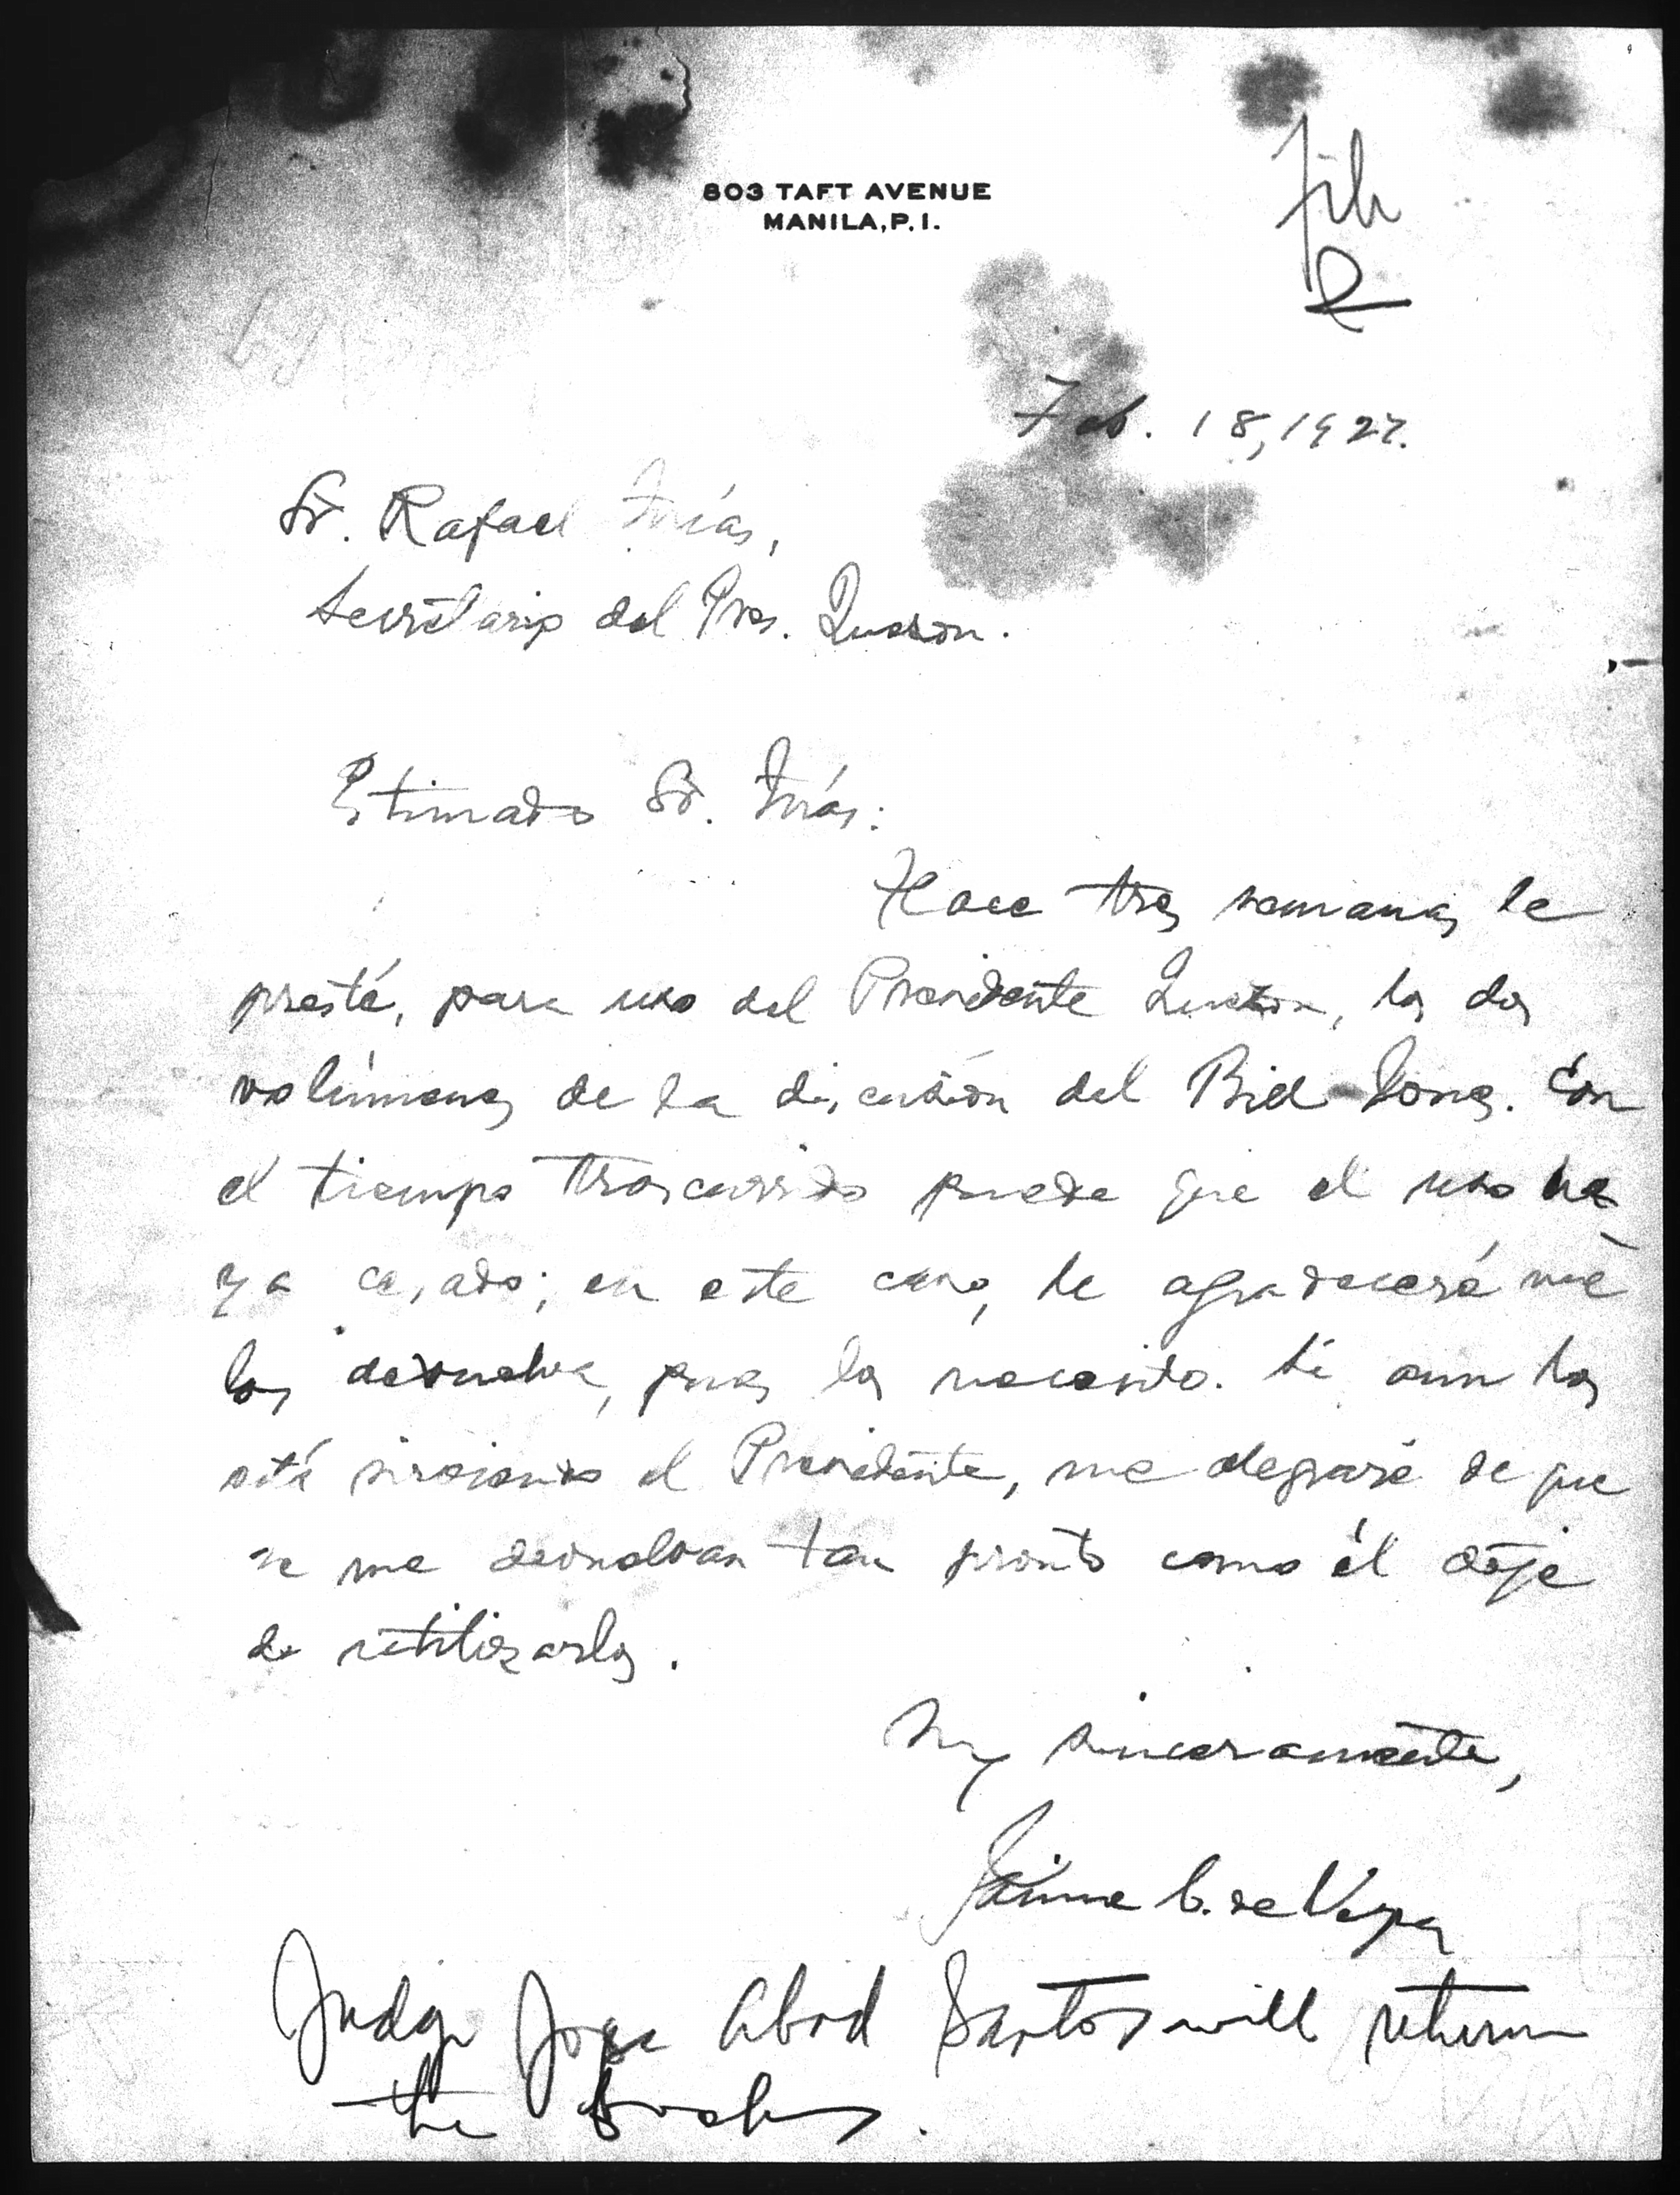 803 TAFT AVENUE
MANILA, P. I.
File
Q
Feb. 18, 1927.
Sr. Rafael
Secretario del Pres. Quezon.
Estimado Sr.
Hace tres semanas le
presté, para uso del Presidente Quezon, los dos
volúmenes de la discusión del Bill Jones. Con
el tiempo trascurrido puede que el uso ha-
ya cesado; en este caso, le agradeceré me
los devuelva, pues los necesito. Si aun los
está sirviendo el Presidente, me alegraré de que
se me devuelvan tan pronto como él deje
de utilizarlos.
Muy sinceramente,
Jaime C. de Veyra
Judge Jose Abad Santos will return
the books.